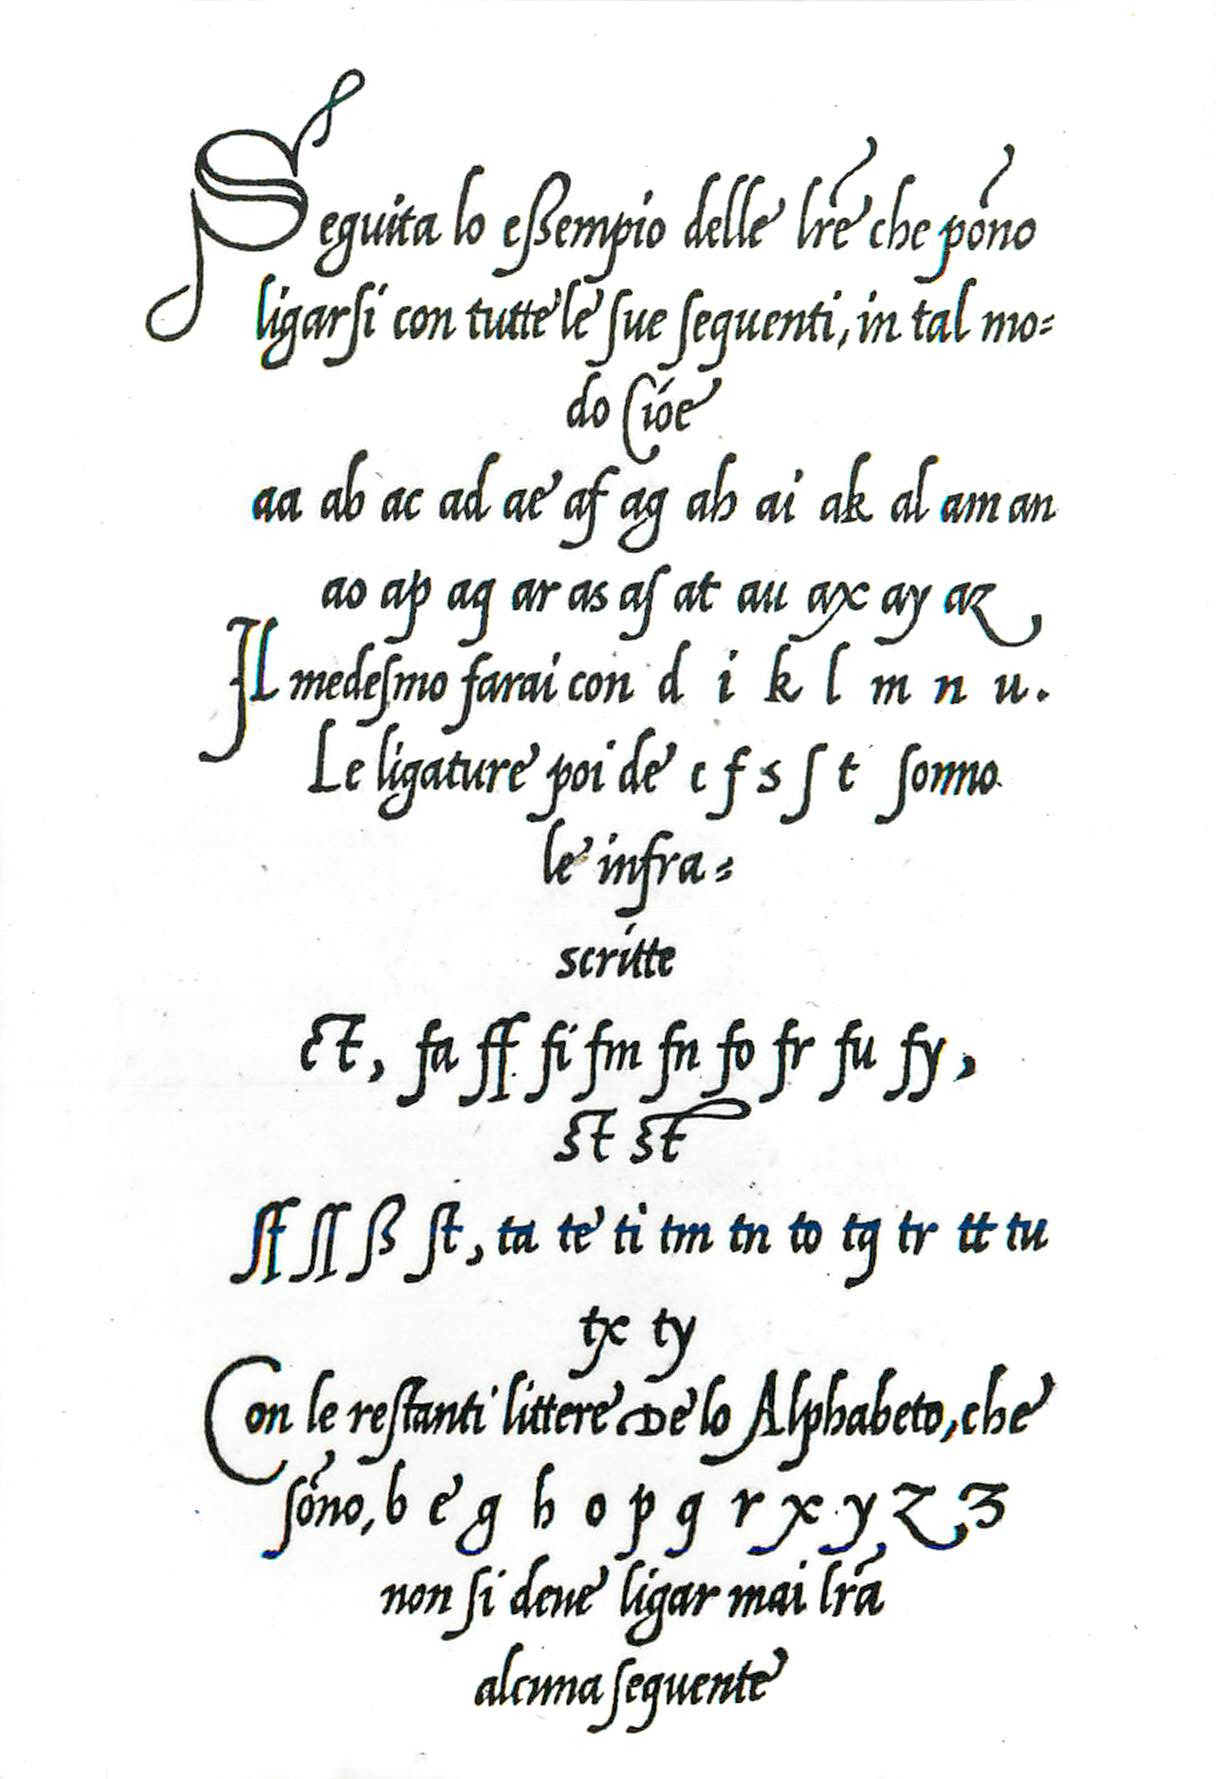 Seguita lo eßempio delle lr̃e che põno
ligarſi con tutte le ſue ſequenti, in tal mo=
do Cióe
aa ab ac ad ae af ag ah ai ak al am an
ao ap aq ar as aſ at au ax ay az
Il medeſmo farai con d i k l m n u.
Le ligature poi de c f s ſ t ſonno
le infra=
scritte
ct, fa ff fi fm fn fo fr fu fy,
st st
ſf ſſ ß ſt, ta te ti tm tn to tq tr tt tu
tx ty
Con le reſtanti littere De lo Alphabeto, che
ſõno, b e g h o p q r x y z ʒ
non ſi deue ligar mai lr̃a
alcuna ſequente